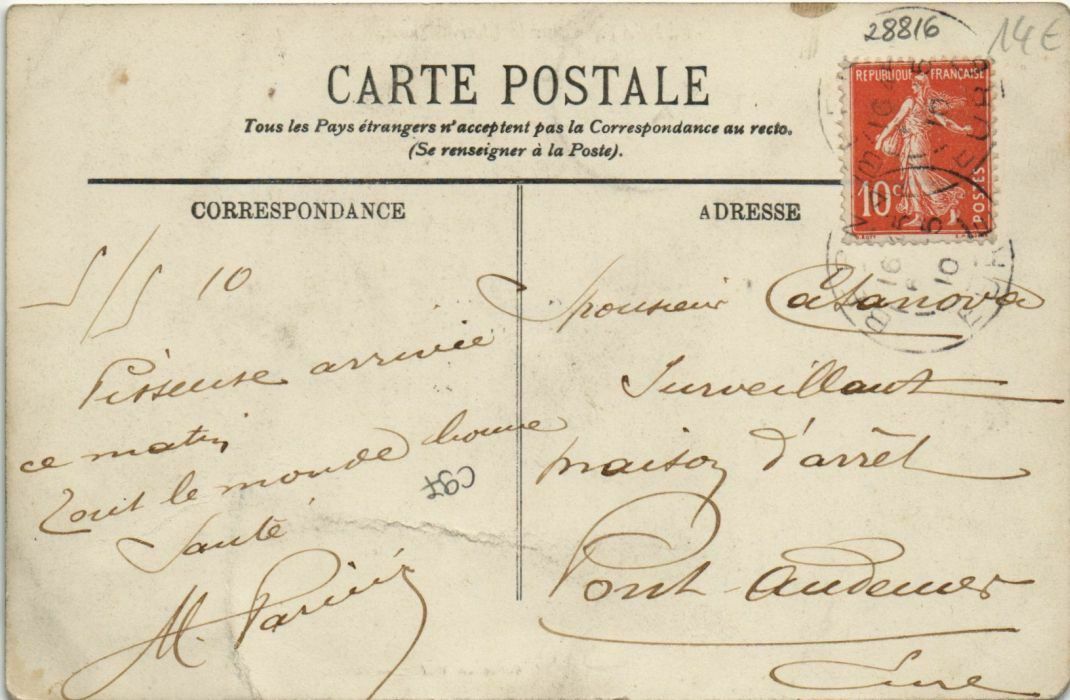 28816
14€
CARTE POSTALE
Tous les Pays étrangers n'acceptent pas la Correspondance au recto.
(Se renseigner à la Poste).
REPUBLIQUE FRANÇAISE
10c
POSTES
CORRESPONDANCE
5/5 10
Pisseuse arrivée
ce matin
Tout le monde bonne
Santé
M.
C97
ADRESSE
Monsieur Casanova
Surveillant
maison d'arrêt
Pont-Audemer
Eure